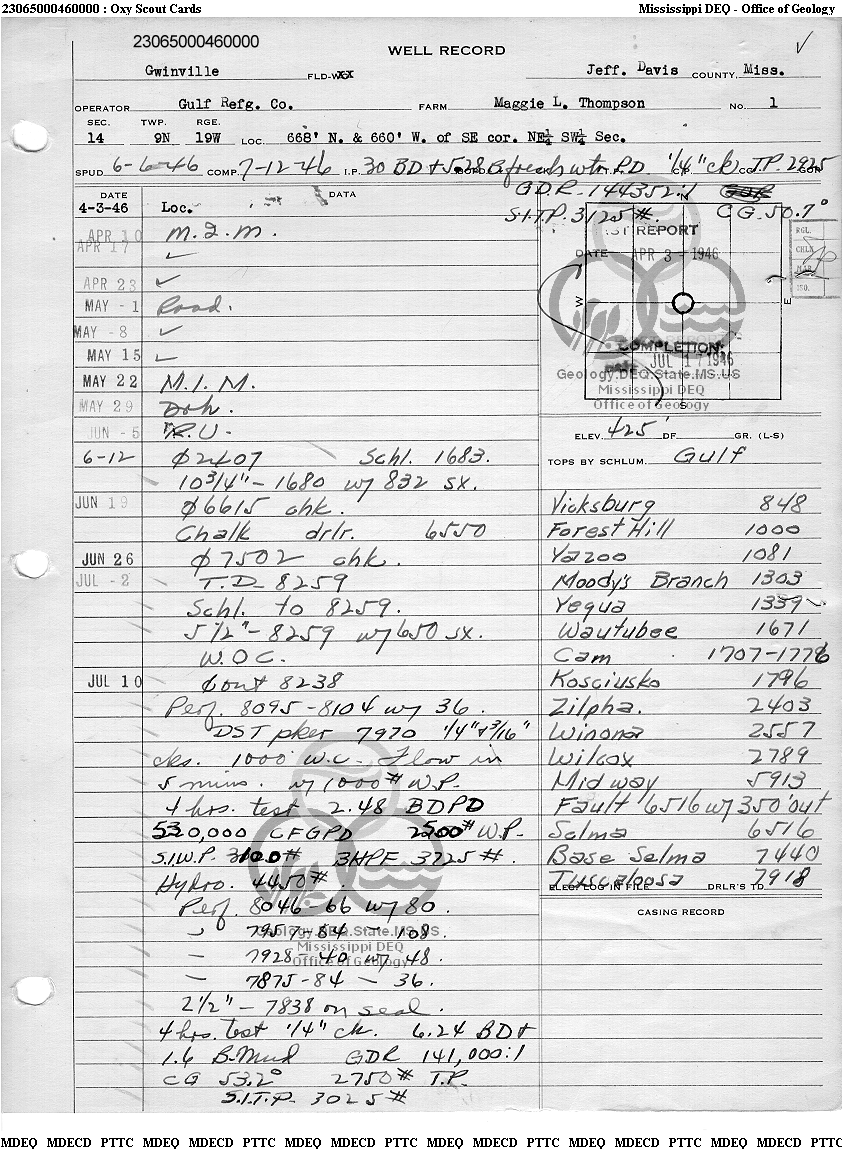 23065000460000 : Oxy Scout Cards
Mississippi DEQ - Office of Geology
23065000460000
WELL RECORD
Gwinville FLD-W
Jeff. Davis COUNTY, Miss.
OPERATOR Gulf Refg. Co. FARM Maggie L. Thompson No. 1
SEC. TWP. RGE.
14 9N 19W LOC. 668' N. & 660' W. of SE cor. NE¼ SW¼ Sec.
SPUD 6-6-46 COMP. 7-12-46 I.P. 30 BD + 5.28 B fresh wtr PD 1/4" ck T.P. 2925
GDR-144352:1
S.I.T.P. 3125 #. CG 50.7°
DATE DATA
4-3-46 Loc.
APR 10 M.I.M.
APR 17 ✓
APR 23 ✓
MAY - 1 Road.
MAY - 8 ✓
MAY 15 ✓
MAY 22 M.I.M.
MAY 29 Doh.
JUN - 5 R.U.
6-12 Ø2407 Schl. 1683.
10 3/4" - 1680 w/ 832 sx.
JUN 19 Ø6615 chk.
Chalk drlr. 6550
JUN 26 Ø7502 chk.
JUL - 2 T.D. 8259
Schl. to 8259.
5 1/2" - 8259 w/ 650 sx.
W.O.C.
JUL 10 Cout 8238
Perf. 8095-8104 w/ 36.
DST pker 7970 1/4" & 3/16"
cks. 1000' W.C. Flow in
5 mins. w/ 1000# W.P.
4 hrs. test 2.48 BDPD
530,000 CFGPD 2500# W.P.
S.I.W.P. 3100# BHPF 3725 #.
Hydro. 4450#.
Perf. 8046-66 w/ 80.
" 7957-84 - 108.
- 7928-40 w/ 48.
- 7875-84 - 36.
2 1/2" - 7838 on seal.
4 hrs. test 1/4" ck. 6.24 BD +
1.6 B. Mud GDR 141,000:1
CG 53.2° 2750# T.P.
S.I.T.P. 3025#
1ST REPORT
DATE APR 3 - 1946
N
W
E
S
COMPLETION:
DATE JUL 17 1946
RGL.
CHLK
MAR.
ISO.
Geology.DEQ.State.MS.US
Mississippi DEQ
Office of Geology
ELEV. 425' DF GR. (L-S)
TOPS BY SCHLUM. Gulf
Vicksburg 848
Forest Hill 1000
Yazoo 1081
Moody's Branch 1303
Yegua 1339
Wautubee 1671
Cam 1707-1776
Kosciusko 1796
Zilpha. 2403
Winona 2557
Wilcox 2789
Midway 5913
Fault 6516 w/ 350' out
Selma 6516
Base Selma 7440
Tuscaloosa 7918
ELEC. LOG IN FILE DRLR'S TD
CASING RECORD
Geology.DEQ.State.MS.US
Mississippi DEQ
Office of Geology
MDEQ MDECD PTTC MDEQ MDECD PTTC MDEQ MDECD PTTC MDEQ MDECD PTTC MDEQ MDECD PTTC MDEQ MDECD PTTC